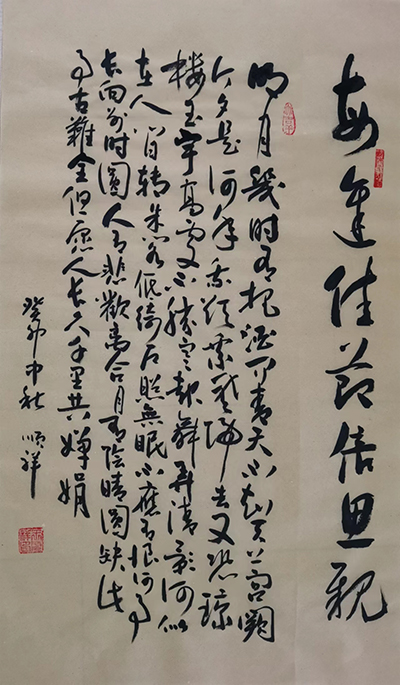 每逢佳節倍思親
明月幾時有把酒问青天不知天上宫闕
今夕是何年我欲乘风歸去又恐琼
楼玉宇高處不勝寒起舞弄清影何似
在人间轉朱阁低绮户照無眠不應有恨何事
长向别时圓人有悲歡离合月有陰晴圓缺此
事古難全但愿人长久千里共嬋娟
癸卯中秋 順祥